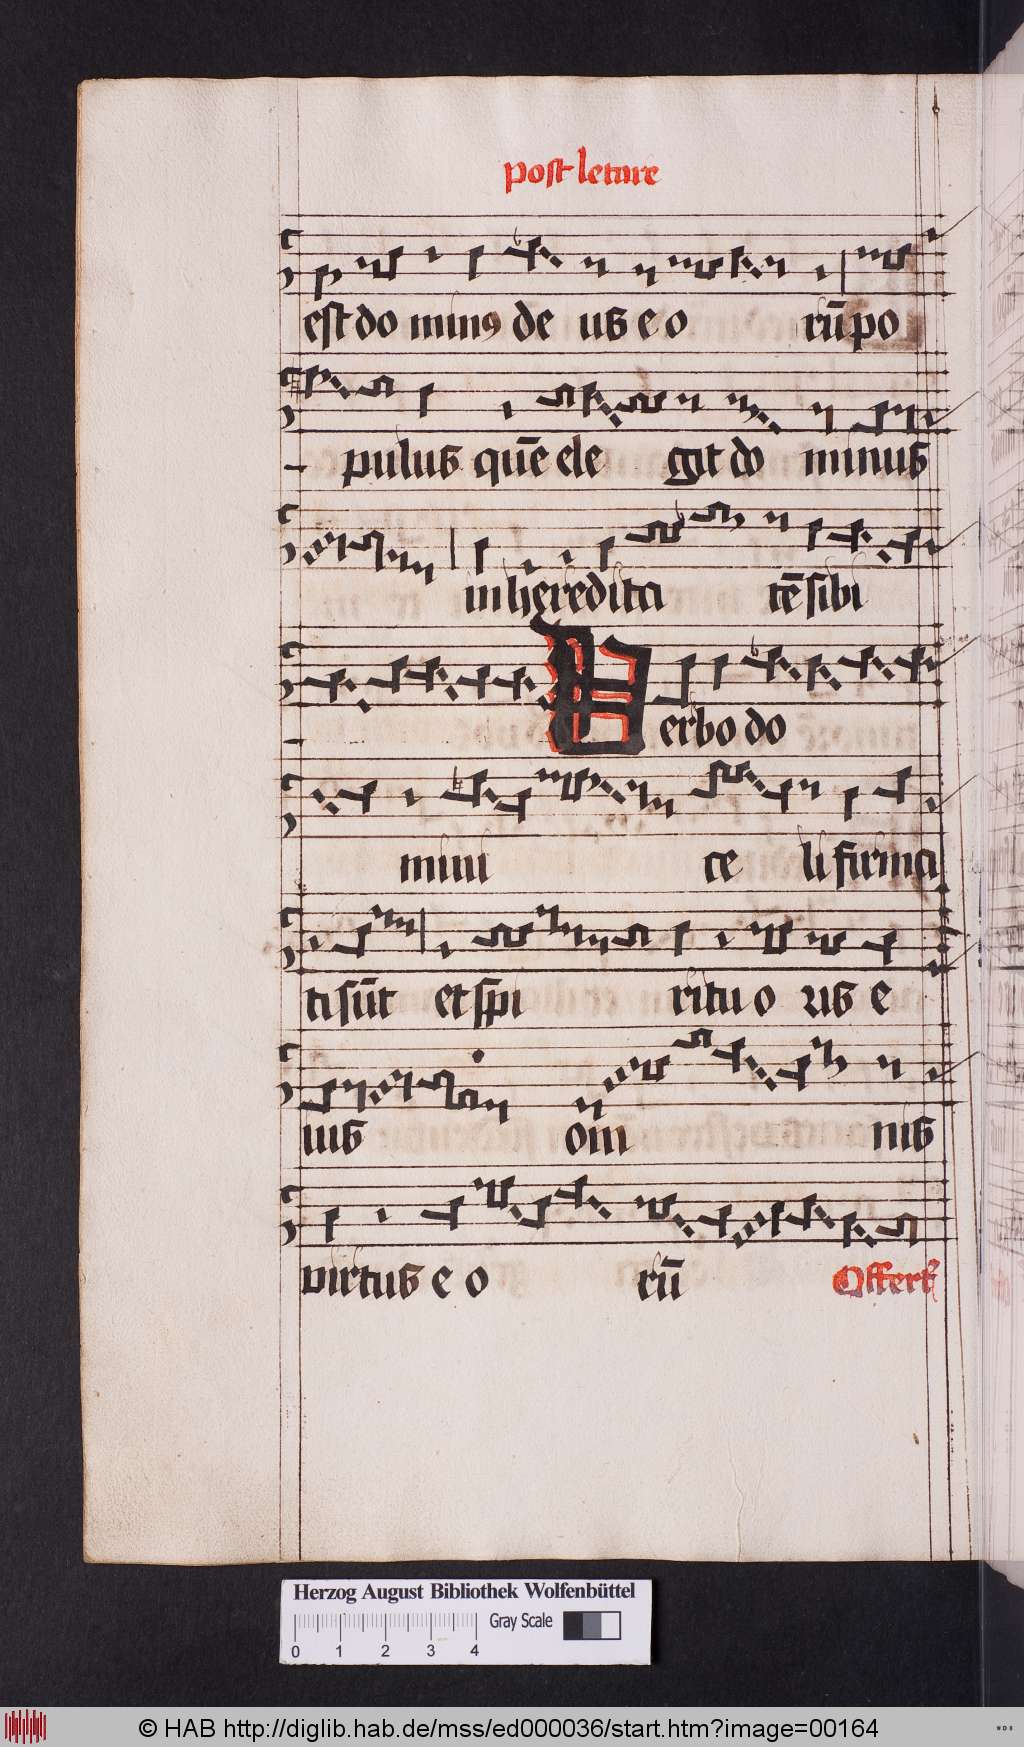 post letare
est do minꝯ de us e o rū po
pulus quē ele git do minus
in heredita tē sibi
Verbo do
mini ce li firma
ti sūt et spi ritu o ris e
ius om nis
virtus e o rū Offert
Herzog August Bibliothek Wolfenbüttel
Gray Scale
0 1 2 3 4
© HAB http://diglib.hab.de/mss/ed000036/start.htm?image=00164